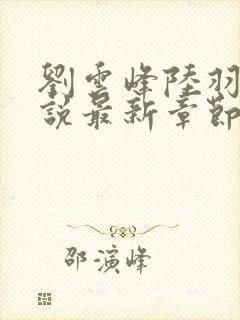 劉雲峰陸羽
說最新章節
邵演峰